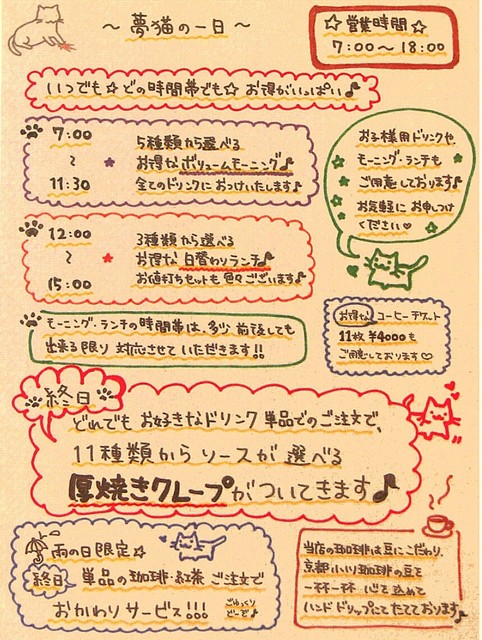 ～ 夢猫の一日 ～
☆営業時間☆
7:00～18:00
いつでも☆どの時間帯でも☆ お得がいっぱい♪
7:00
～
11:30
★
5種類から選べる
お得なボリュームモーニング♪
全てのドリンクにおつけいたします♪
お子様用ドリンクや、
モーニング・ランチも
ご用意しております♪
お気軽に お申しつけ
ください♡
12:00
～
15:00
★
3種類から選べる
お得な 日替わりランチ♪
お値打ちセットも 色々ございます♪
お得な コーヒーチケット
11枚 ¥4000も
ご用意しております♡
モーニング・ランチの時間帯は、多少 前後しても
出来る限り 対応させて いただきます!!
終日
どれでも お好きなドリンク 単品でのご注文で、
11種類から ソースが 選べる
厚焼きクレープがついてきます♪
雨の日限定☆
終日 単品の珈琲・紅茶 ご注文で
おかわり サービス!!!
ごゆっくり
どーぞ♪
当店の珈琲は豆にこだわり、
京都 小川珈琲の豆を
一杯一杯 心を込めて
ハンドドリップにてたてております♪